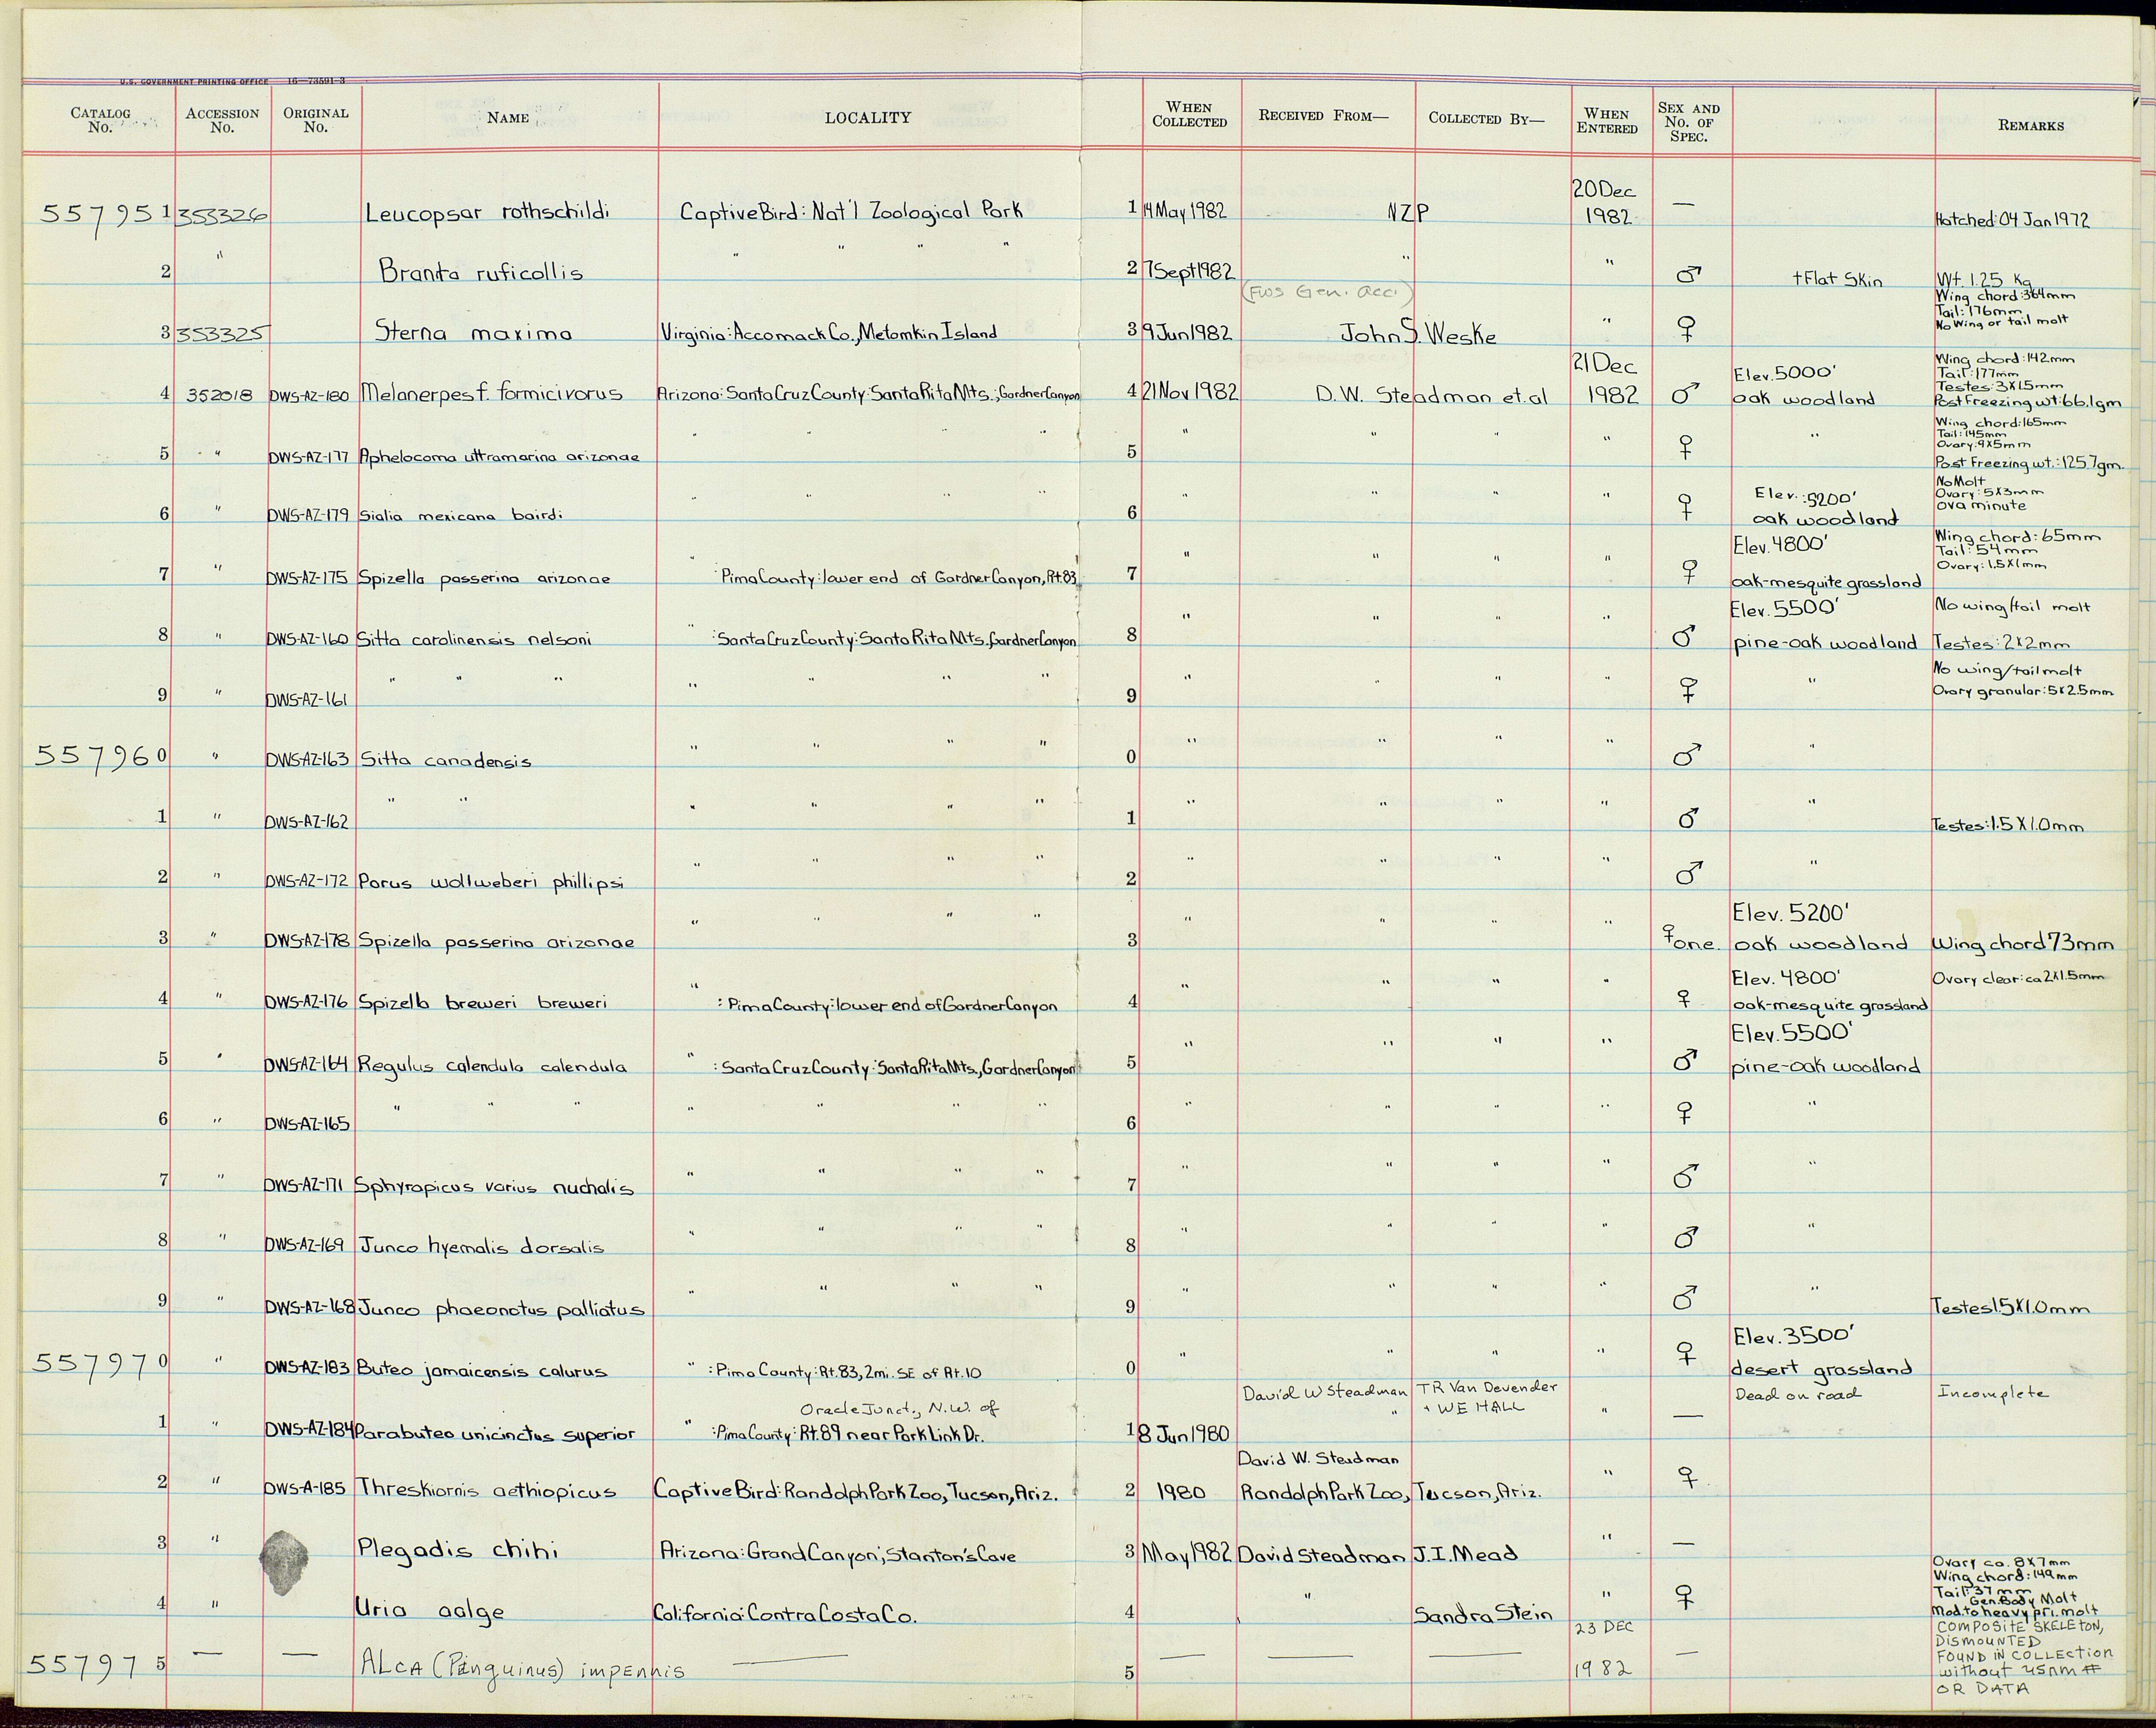 U.S. GOVERNMENT PRINTING OFFICE 16—73591-3
CATALOG No. ACCESSION No. ORIGINAL No. NAME LOCALITY WHEN COLLECTED RECEIVED FROM— COLLECTED BY— WHEN ENTERED SEX AND No. OF SPEC. REMARKS
557951 353326 Leucopsar rothschildi Captive Bird: Nat'l Zoological Park 1 14 May 1982 NZP 20 Dec 1982 — Hatched: 04 Jan 1972
2 " Branta ruficollis " " " 2 7 Sept 1982 " " ♂ †Flat Skin Wt. 1.25 Kg
(FWS Gen. Acc.)
3 353325 Sterna maxima Virginia: Accomack Co., Metomkin Island 3 9 Jun 1982 John S. Weske " ♀ Wing chord: 364mm Tail: 176mm No Wing or tail molt
4 352018 DWS-AZ-180 Melanerpes f. formicivorus Arizona: Santa Cruz County: Santa Rita Mts.; Gardner Canyon 4 21 Nov 1982 D.W. Steadman et.al 21 Dec 1982 ♂ Elev. 5000' oak woodland Wing chord: 142mm Tail: 177mm Testes: 3X1.5mm Post Freezing wt: 66.1gm
5 " DWS-AZ-177 Aphelocoma ultramarina arizonae " " " " 5 " " " " ♀ " Wing chord: 165mm Tail: 145mm Ovary: 9X5mm Post Freezing wt.: 125.7gm.
6 " DWS-AZ-179 Sialia mexicana bairdi " " " " 6 " " " " ♀ Elev.: 5200' oak woodland No Molt Ovary: 5X3mm Ova minute
7 " DWS-AZ-175 Spizella passerina arizonae " Pima County: lower end of Gardner Canyon, Rt. 83 7 " " " " ♀ Elev. 4800' oak-mesquite grassland Wing chord: 65mm Tail: 54mm Ovary: 1.5X1mm
8 " DWS-AZ-160 Sitta carolinensis nelsoni " : Santa Cruz County: Santa Rita Mts. Gardner Canyon 8 " " " " ♂ Elev. 5500' pine-oak woodland No wing/tail molt Testes: 2X2mm
9 " DWS-AZ-161 " " " " " " " 9 " " " " ♀ " No wing/tail molt Ovary granular: 5X2.5mm
557960 " DWS-AZ-163 Sitta canadensis " " " " 0 " " " " ♂ "
1 " DWS-AZ-162 " " " " " " 1 " " " " ♂ " Testes: 1.5 X 1.0mm
2 " DWS-AZ-172 Parus wollweberi phillipsi " " " " 2 " " " " ♂ "
3 " DWS-AZ-178 Spizella passerina arizonae " " " " 3 " " " " ♀ one. Elev. 5200' oak woodland Wing chord 73mm
4 " DWS-AZ-176 Spizella breweri breweri " : Pima County: lower end of Gardner Canyon 4 " " " " ♀ Elev. 4800' oak-mesquite grassland Ovary clear: ca 2X1.5mm
5 " DWS-AZ-164 Regulus calendula calendula " : Santa Cruz County: Santa Rita Mts., Gardner Canyon 5 " " " " ♂ Elev. 5500' pine-oak woodland
6 " DWS-AZ-165 " " " " " " " 6 " " " " ♀ "
7 " DWS-AZ-171 Sphyrapicus varius nuchalis " " " " 7 " " " " ♂ "
8 " DWS-AZ-169 Junco hyemalis dorsalis " " " " 8 " " " " ♂ "
9 " DWS-AZ-168 Junco phaeonotus palliatus " " " " 9 " " " " ♂ " Testes 1.5X1.0mm
557970 " DWS-AZ-183 Buteo jamaicensis calurus " : Pima County: Rt. 83, 2mi. SE of Rt. 10 0 " " " " ♀ Elev. 3500' desert grassland
1 " DWS-AZ-184 Parabuteo unicinctus superior " Oracle Junct., N.W. of : Pima County: Rt. 89 near Park Link Dr. 1 8 Jun 1980 David W Steadman " TR Van Devender + WE HALL " — Dead on road Incomplete
2 " DWS-A-185 Threskiornis aethiopicus Captive Bird: Randolph Park Zoo, Tucson, Ariz. 2 1980 David W. Steadman Randolph Park Zoo, Tucson, Ariz. " ♀
3 " Plegadis chihi Arizona: Grand Canyon; Stanton's Cave 3 May 1982 David Steadman J.I. Mead " —
4 " Uria aalge California: Contra Costa Co. 4 " Sandra Stein " ♀ Ovary ca. 8X7mm Wing chord: 149mm Tail: 37mm Gen. Body Molt Mod. to heavy pri. molt
557975 — — ALCA (Pinguinus) impennis — 5 — — — 23 DEC 1982 — COMPOSITE SKELETON, DISMOUNTED FOUND IN COLLECTION without USNM # OR DATA